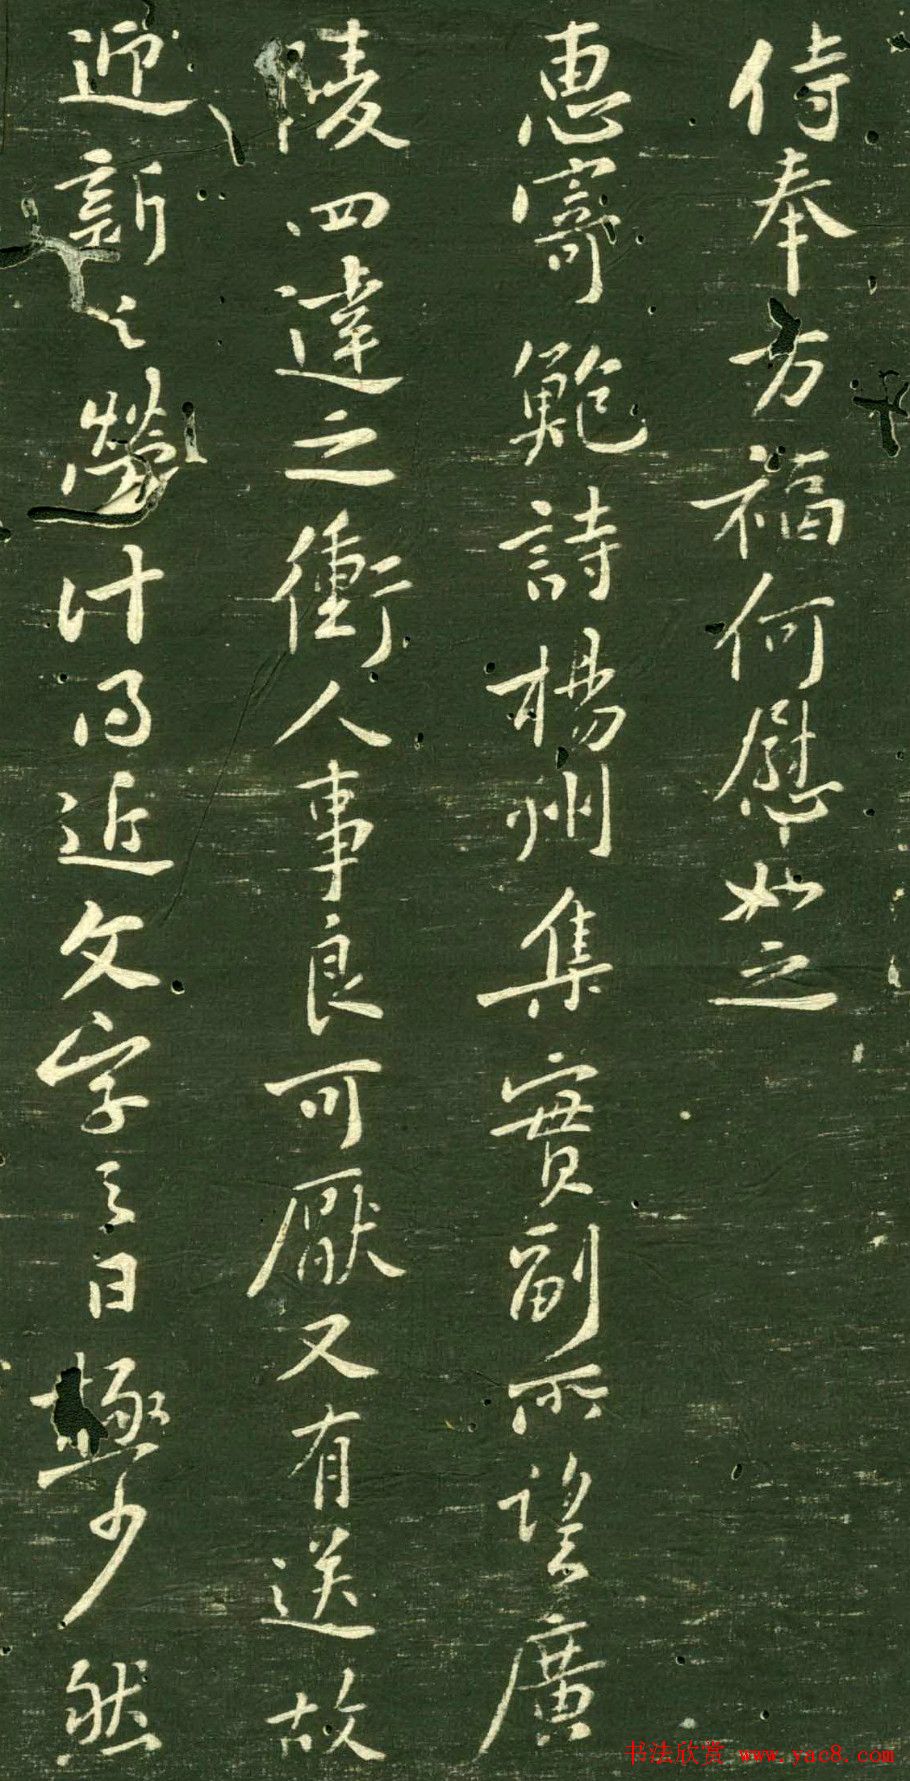 侍奉万福何慰如之
惠寄鲍詩楊州集實副所望廣
陵四達之衝人事良可厭又有送故
迎新之勞計得近文字之日極少然
书法欣赏 www.yac8.com